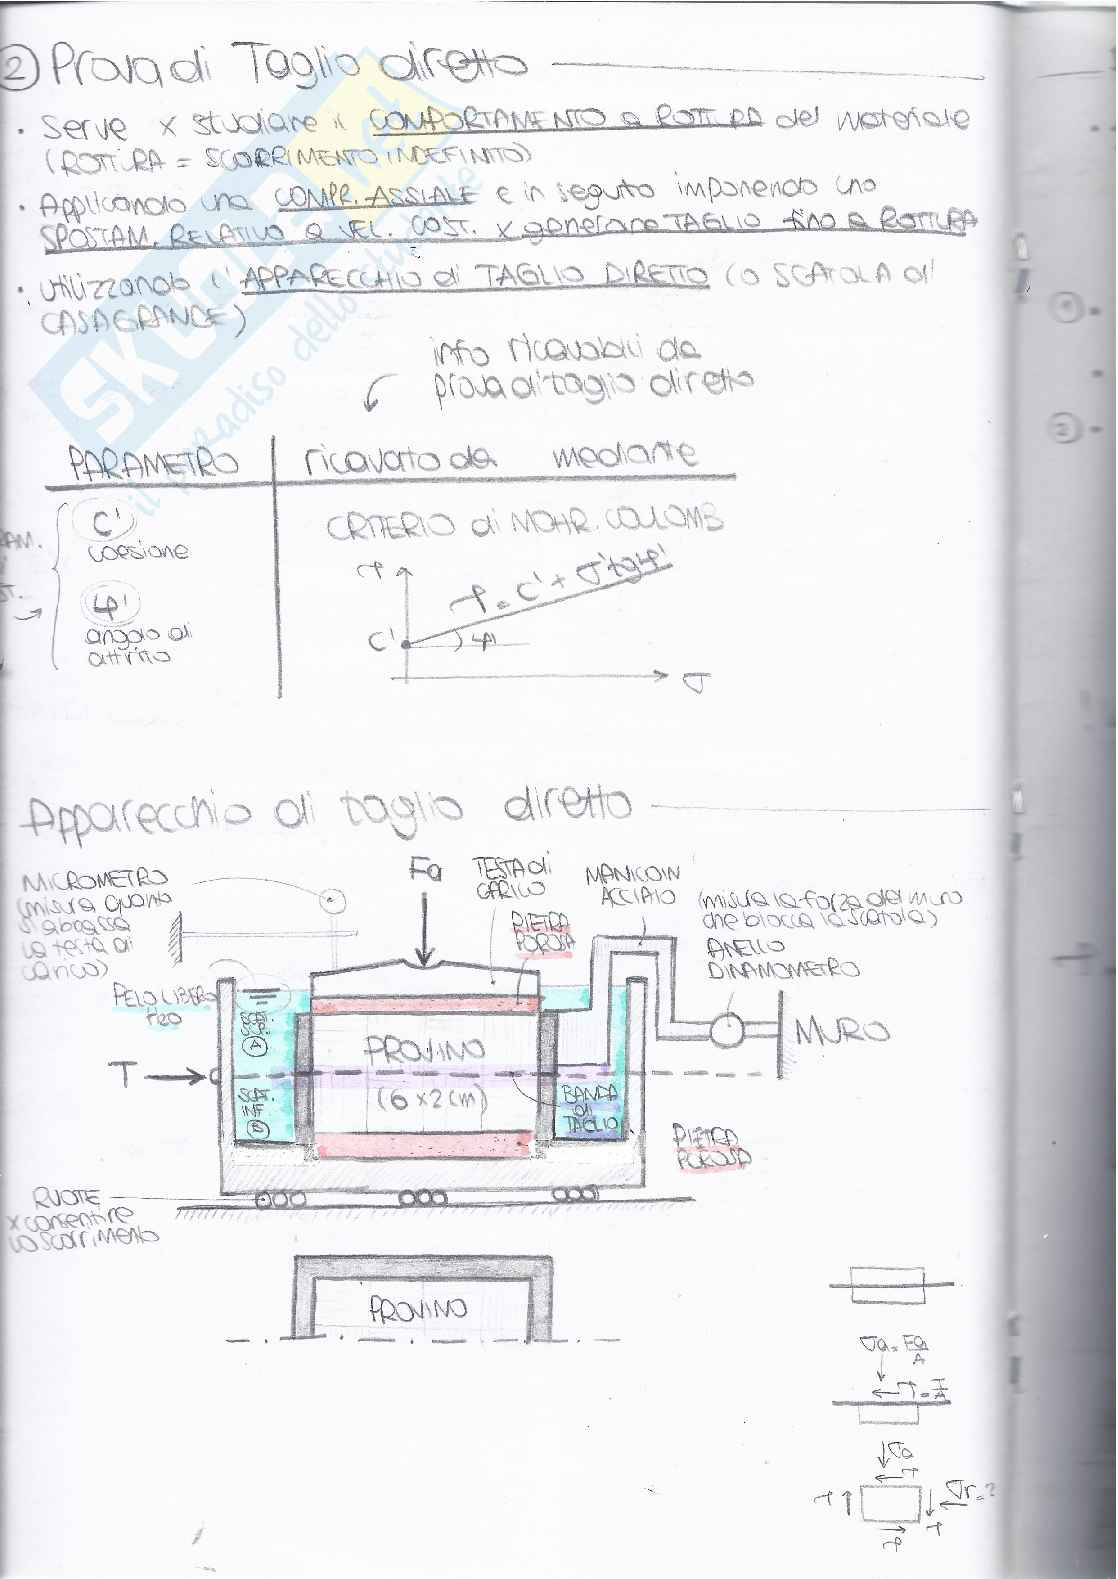 ② Prova di Taglio diretto
• Serve x studiare il COMPORTAMENTO a ROTTURA del materiale
(ROTTURA = SCORRIMENTO INDEFINITO)
• Applicando una COMPR. ASSIALE e in seguito imponendo uno
SPOSTAM. RELATIVO a VEL. COST. x generare TAGLIO fino a ROTTURA
• utilizzando l'APPARECCHIO di TAGLIO DIRETTO (o SCATOLA di
CASAGRANDE)
info ricavabili da
prova di taglio diretto
PARAMETRO
ricavato da mediante
C'
coesione
φ'
angolo di
attrito
CRITERIO di MOHR-COULOMB
τ
τ = c' + σ' tg φ'
C'
φ'
σ
Apparecchio di taglio diretto
MICROMETRO
(misura quanto
si abbassa
la testa di
carico)
Fa
TESTA di
CARICO
PIETRA
POROSA
MANICO IN
ACCIAIO
(misura la forza del muro
che blocca la scatola)
ANELLO
DINAMOMETRO
PELO LIBERO
H2O
SCAT.
SUP.
A
PROVINO
(6 x 2 cm)
MURO
T
SCAT.
INF.
B
BANDA
di
TAGLIO
PIETRA
POROSA
RUOTE
x consentire
lo scorrimento
PROVINO
σa = Fa/A
τ = T/A
σa
τ
τ
σr = ?
τ
τ
SKUOLA
il paradiso dello studente
①
②